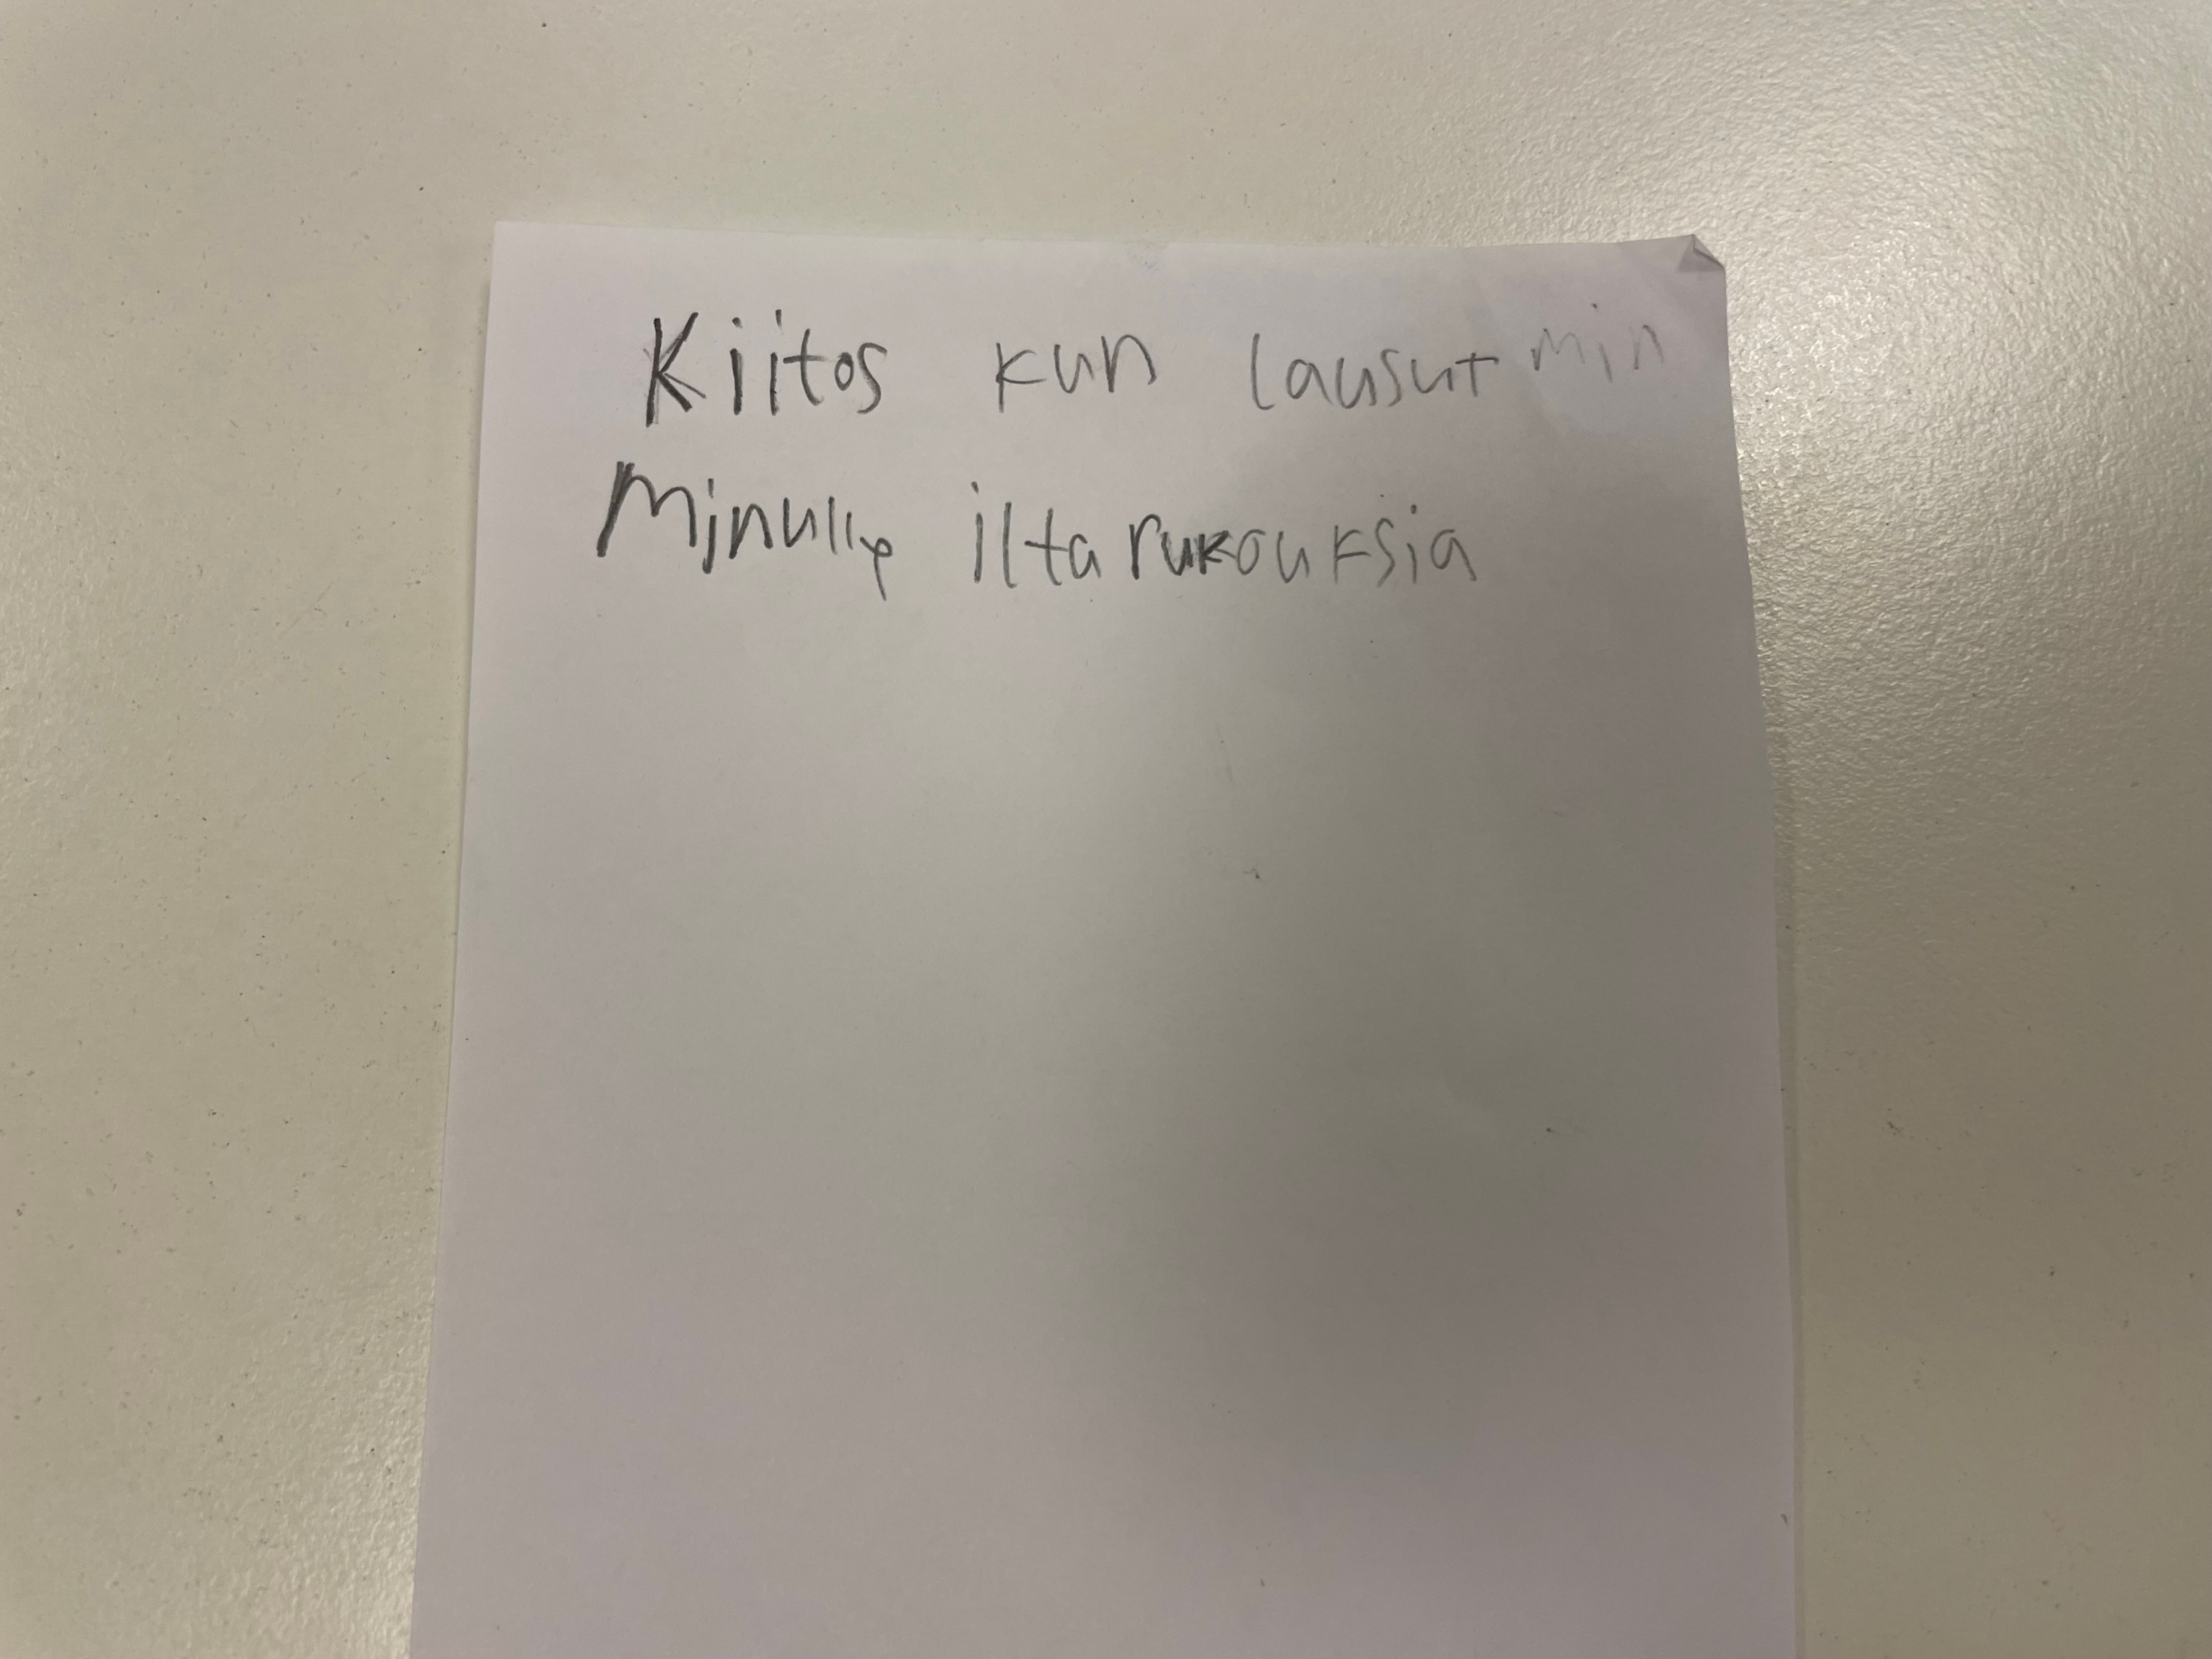 Kiitos kun lausut min
Minulle iltarukouksia